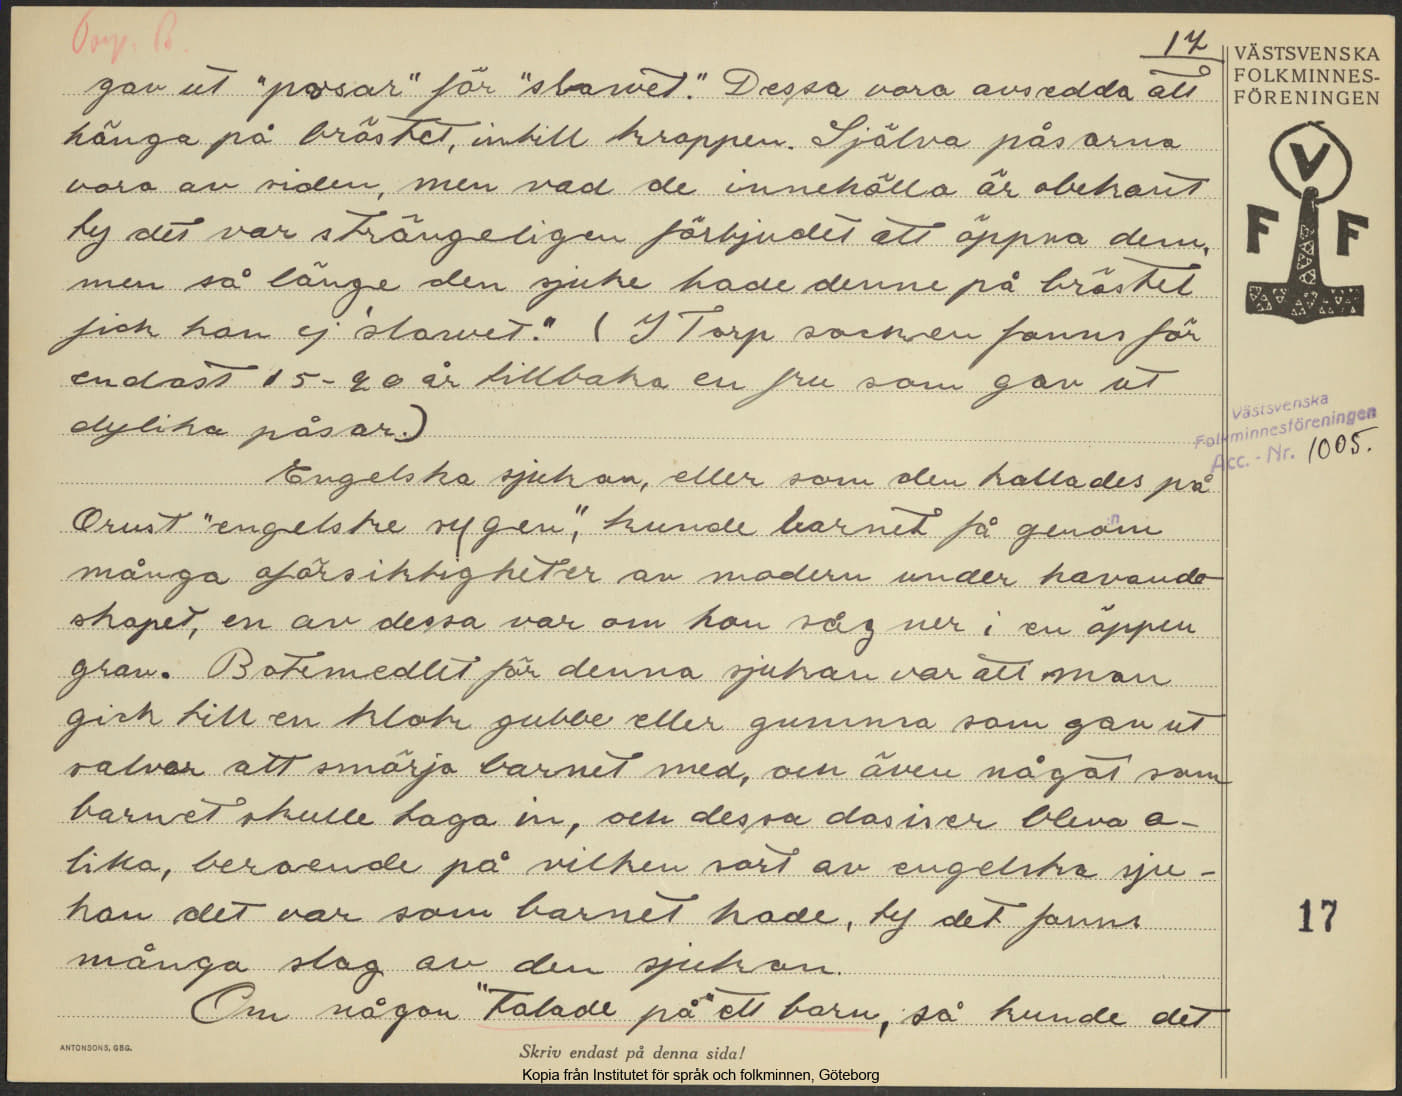 17
gav ut "posar" för "slawet." Dessa vora avsedda att
hänga på bröstet, intill kroppen. Själva påsarna
vora av siden, men vad de innehålla är obekant
ty det var strängeligen förbjudet att öppna dem,
men så länge den sjuke hade denne på bröstet
fick han ej "slawet." (I Torp socken fanns för
endast 15-20 år tillbaka en fru som gav ut
dylika påsar.)
Engelska sjukan, eller som den kallades på
Orust "engelske sygen", kunde barnet få genom
många oförsiktigheter av modern under havande-
skapet, en av dessa var om hon såg ner i en öppen
grav. Botemedlet för denna sjukan var att man
gick till en klok gubbe eller gumma som gav ut
salvor att smörja barnet med, och även något som
barnet skulle taga in, och dessa dosiser bleva o-
lika, beroende på vilken sort av engelska sju-
kan det var som barnet hade, ty det fanns
många slag av den sjukan.
Om någon "talade på" ett barn, så kunde det
ANTONSONS, GBG.
Skriv endast på denna sida!
Kopia från Institutet för språk och folkminnen, Göteborg
VÄSTSVENSKA
FOLKMINNES-
FÖRENINGEN
V
F F
Västsvenska
Folkminnesföreningen
Acc.-Nr. 1005.
17